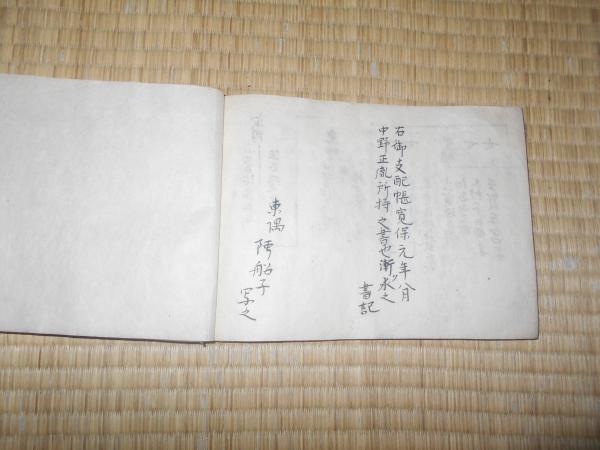 右御支配帳寛保元年八月
中野正胤所持之書也漸求之
書記
東隅 陳船子 写之